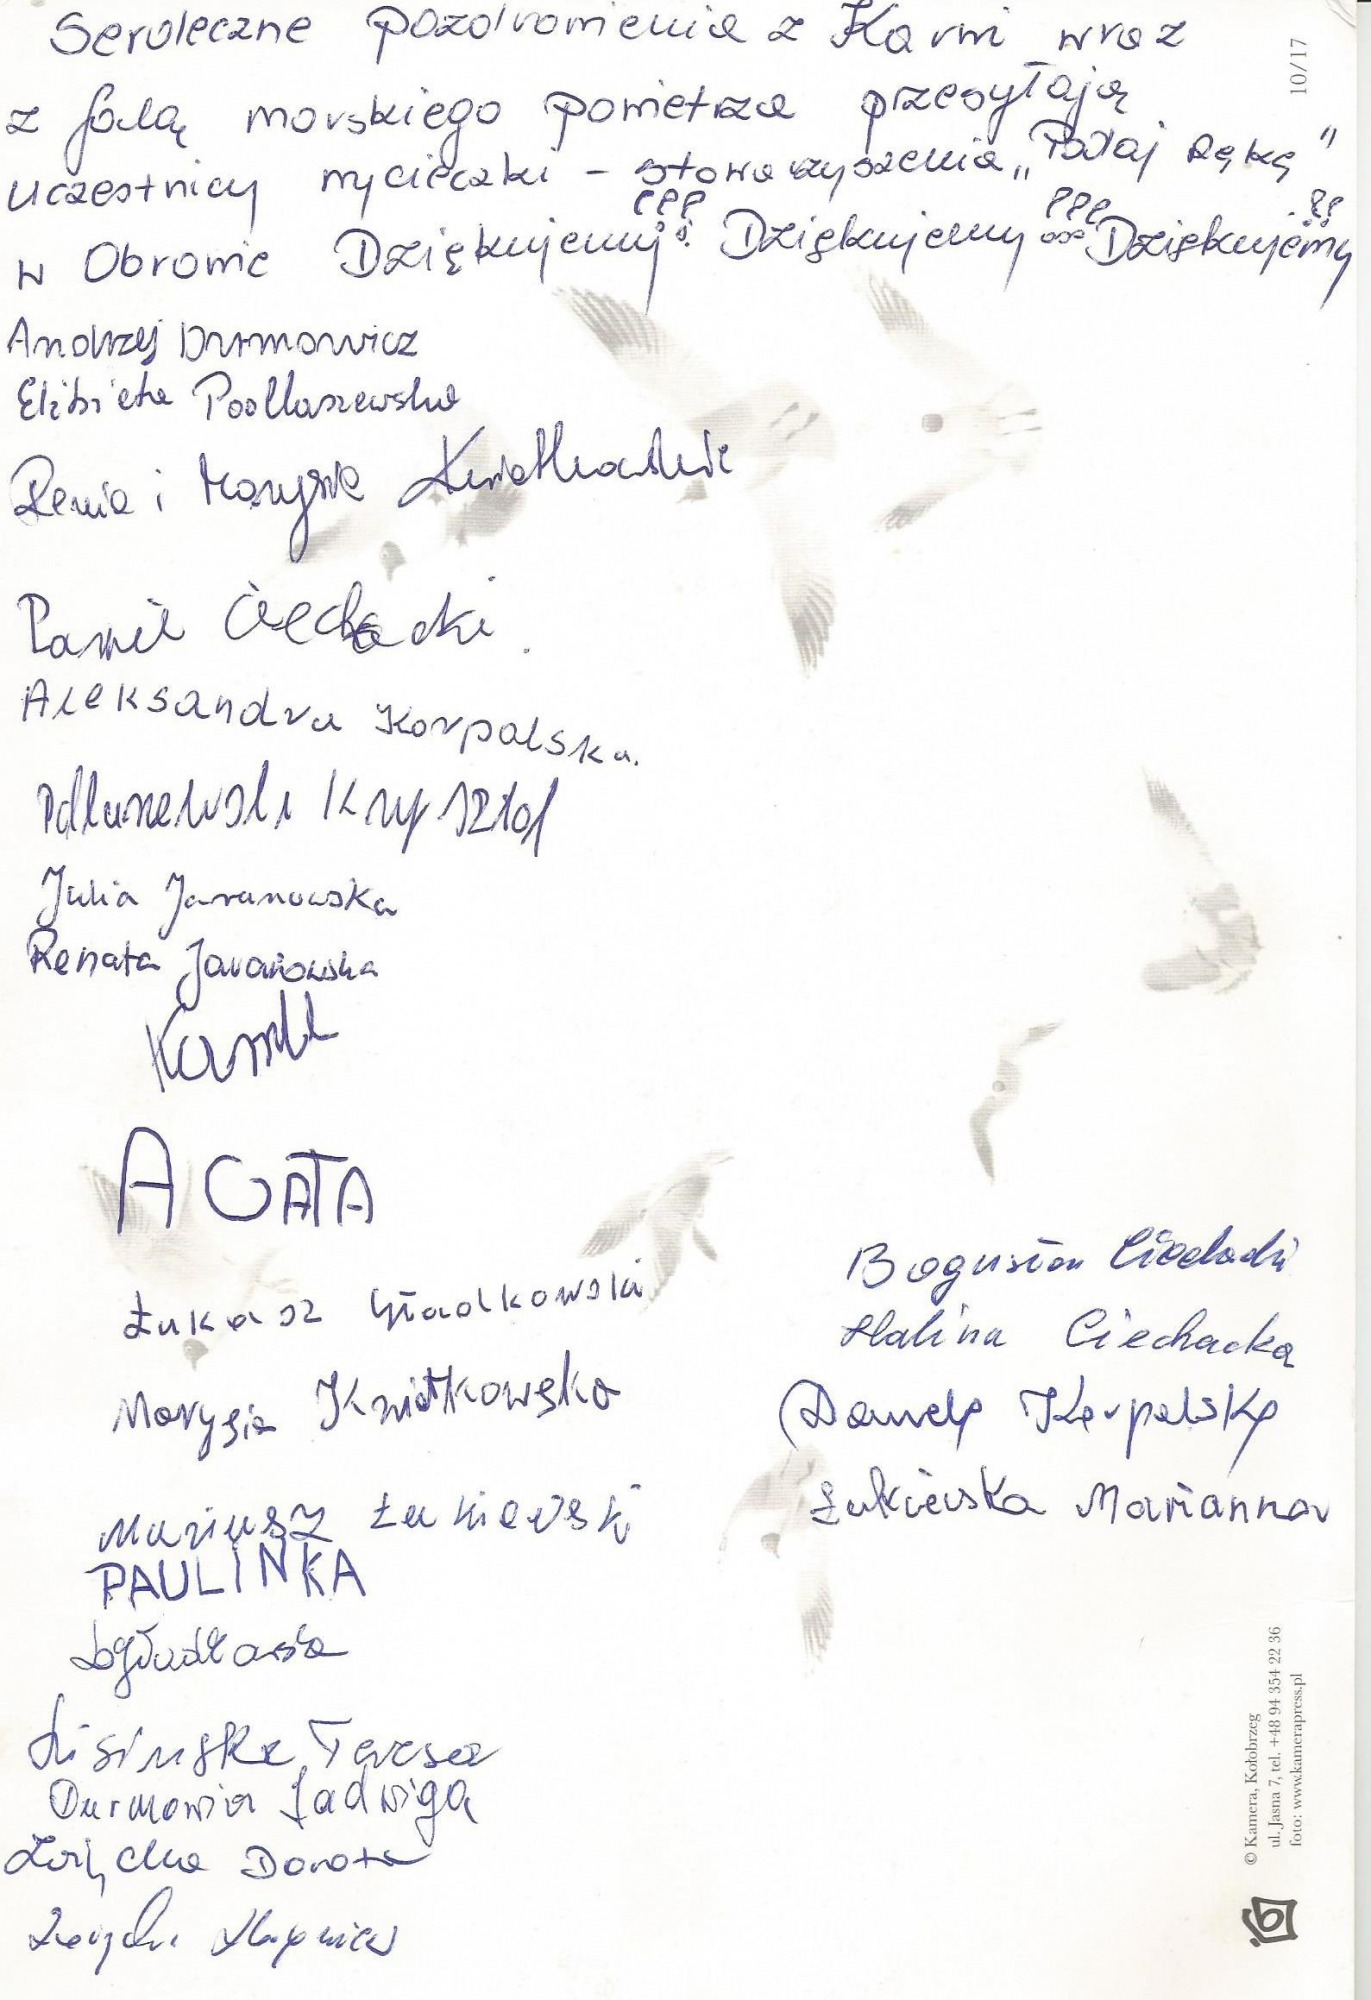 Serdeczne pozdrowienia z Karwi wraz
z falą morskiego powietrza przesyłają
uczestnicy wycieczki - stowarzyszenia „Podaj Rękę"
w Obrowie Dziękujemy!!! Dziękujemy!!! Dziękujemy!!
Andrzej Durmowicz
Elżbieta Podlaszewska
Renia i Marysia Kwiatkowskie
Paweł Ciechacki.
Aleksandra Korpalska.
Podlaszewski Krzysztof
Julia Jaranowska
Renata Jaranowska
Kamil
AGATA
Łukasz Gładkowski
Marysia Kwiatkowska
Mariusz Łukiewski
PAULINKA
Lisińska Teresa
Durmowicz Jadwiga
Dorota
Bogusław Ciechacki
Halina Ciechacka
Danuta Korpalska
Łukiewska Marianna
10/17
© Kamera, Kołobrzeg
ul. Jasna 7, tel. +48 94 354 22 36
foto: www.kamerapress.pl